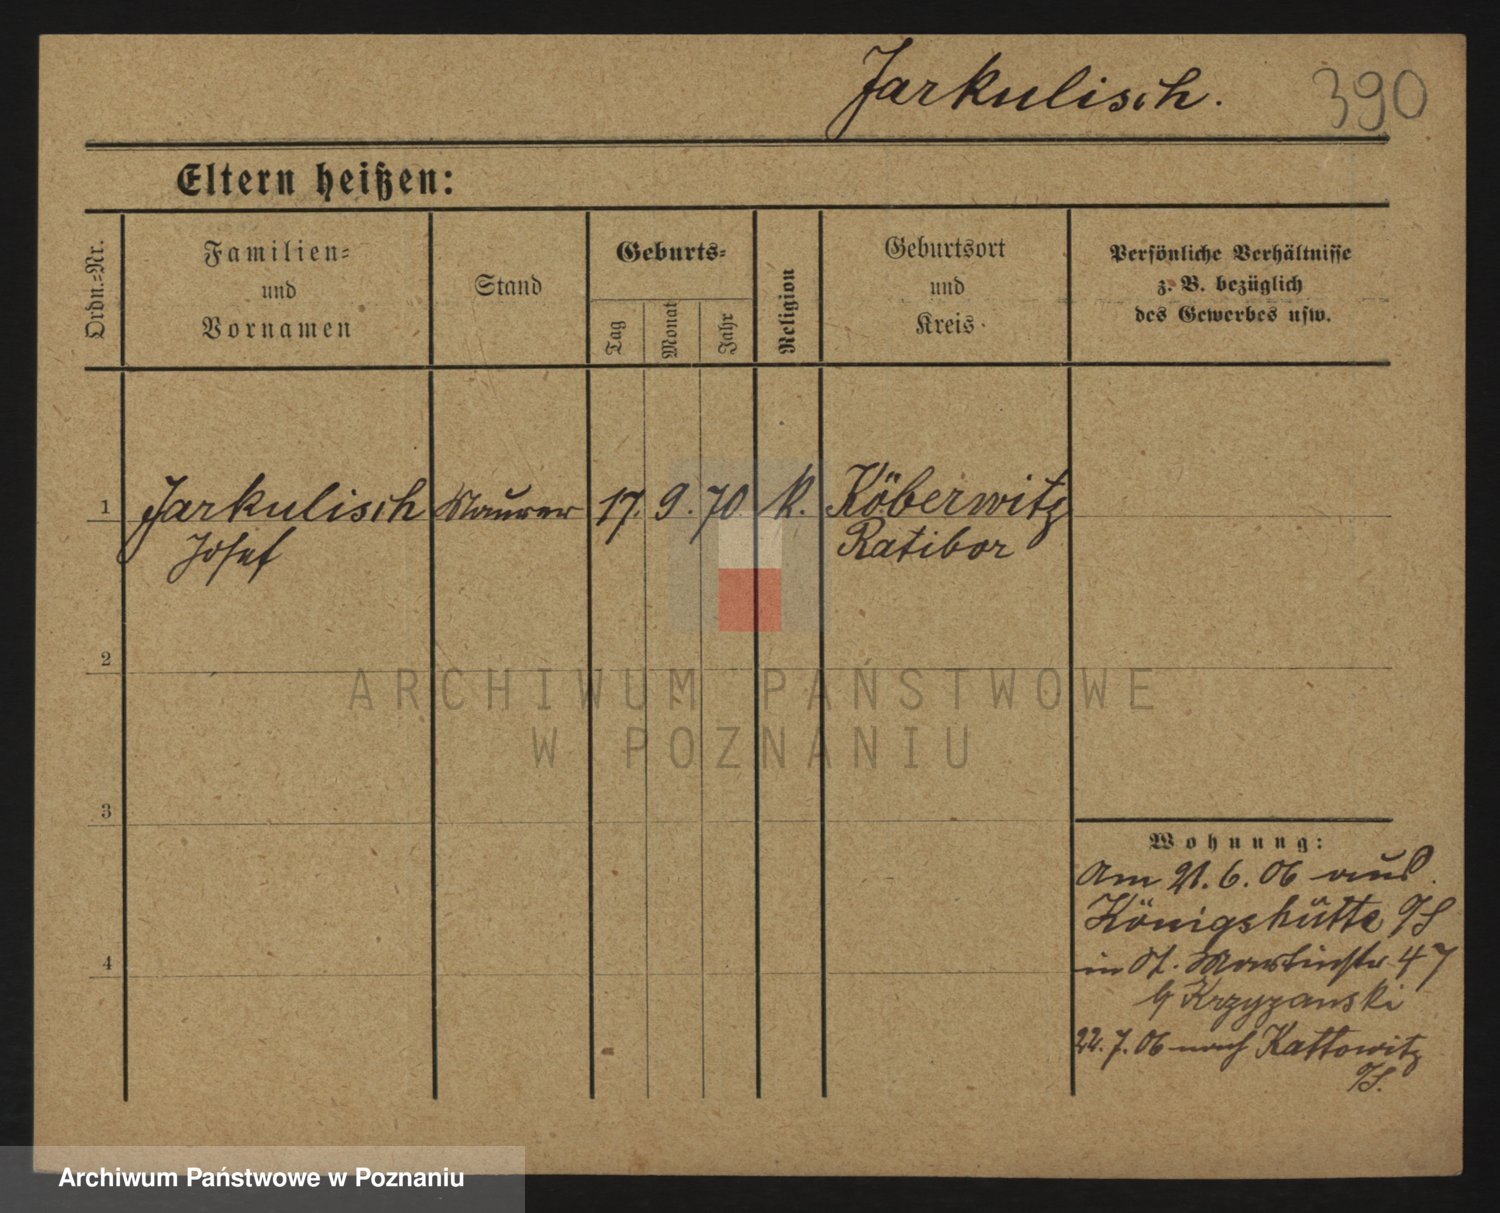 Jarkulisch. 390
Eltern heißen:
Ordn.-Nr.
Familien-
und
Vornamen
Stand
Geburts-
Tag
Monat
Jahr
Religion
Geburtsort
und
Kreis.
Persönliche Verhältnisse
z. B. bezüglich
des Gewerbes usw.
1 Jarkulisch Maurer 17. 9. 70 k. Köberwitz
Josef Ratibor
2
3
4
Wohnung:
Am 21. 6. 06 aus
Königshütte O/S
in St. Martinstr. 47
b/ Krzyzanski
22. 7. 06 nach Kattowitz
O/S.
ARCHIWUM PAŃSTWOWE
W POZNANIU
Archiwum Państwowe w Poznaniu